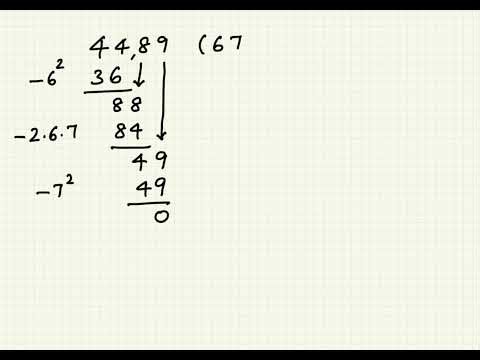 44,89 (67
-6² 36
88
-2·6·7 84
49
-7² 49
0